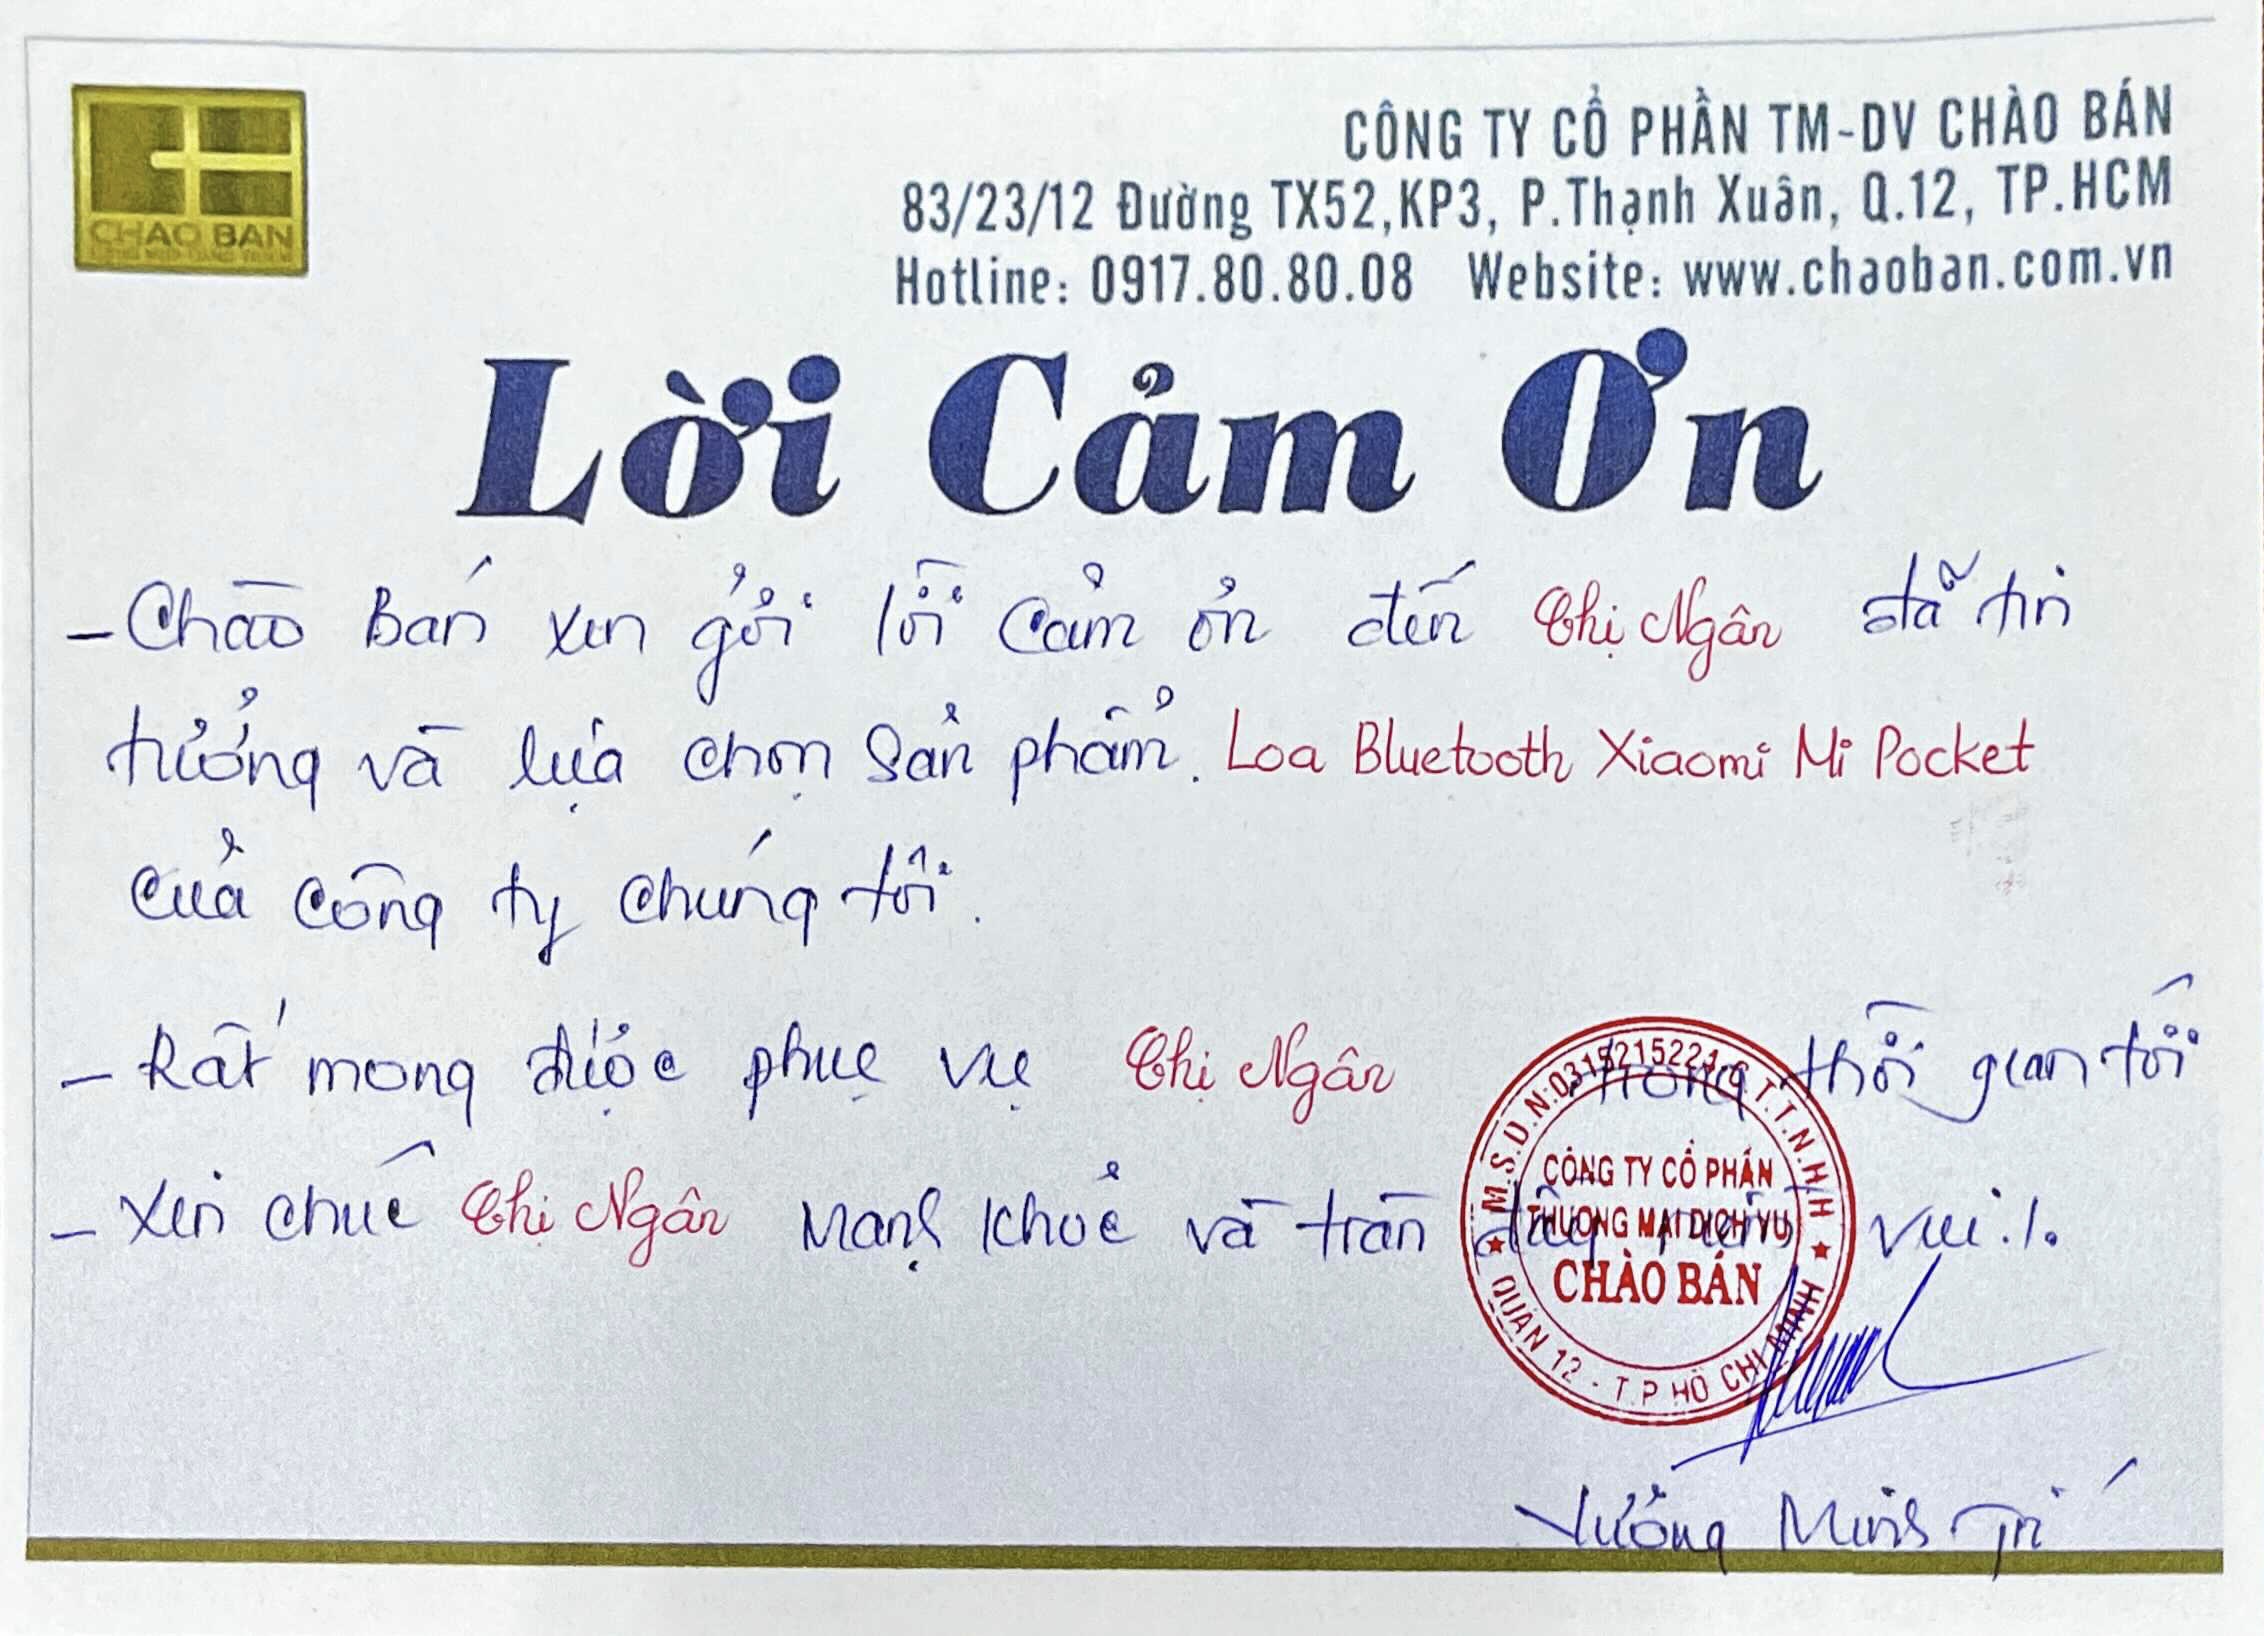 CHAO BAN
CÔNG TY CỔ PHẦN TM-DV CHÀO BÁN
83/23/12 Đường TX52,KP3, P.Thạnh Xuân, Q.12, TP.HCM
Hotline: 0917.80.80.08 Website: www.chaoban.com.vn
Lời Cảm Ơn
- Chào Bán xin gửi lời cảm ơn đến Chị Ngân đã tin
tưởng và lựa chọn sản phẩm. Loa Bluetooth Xiaomi Mi Pocket
của công ty chúng tôi.
- Rất mong được phục vụ Chị Ngân trong thời gian tới
- Xin chúc Chị Ngân mạnh khoẻ và tràn đầy niềm vui./.
M.S.D.N:0315215221-C.T.T.N.H.H
CÔNG TY CỔ PHẦN
THƯƠNG MẠI DỊCH VỤ
CHÀO BÁN
QUẬN 12 - T.P HỒ CHÍ MINH
Minh Trí